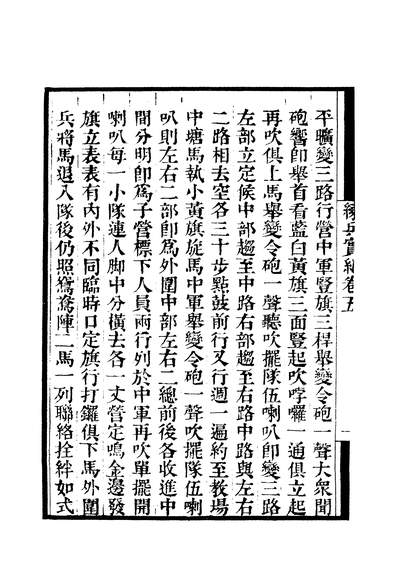 練兵實紀卷五
平曠變三路行營中軍豎旗三桿舉變令砲一聲大衆聞
砲響卽舉首看藍白黃旗三面豎起吹哱囉一通俱立起
再吹俱上馬舉變令砲一聲聽吹擺隊伍喇叭卽變三路
左部立定候中部趨至中路右部趨至右路中路與左右
二路相去空各三十步點鼓前行又行週一遍約至教場
中塘馬執小黃旗旋馬中軍舉變令砲一聲吹擺隊伍喇
叭則左右二部卽爲外圍中部左右二總前後各收進中
間分明卽爲子營標下人員兩行列於中軍再吹單擺開
喇叭每一小隊連人脚中分橫去各一丈營定鳴金邊發
旗立表表有內外不同臨時口定旗行打鑼俱下馬外圍
兵將馬退入隊後仍照鴛鴦陣二馬一列聯絡拴絆如式